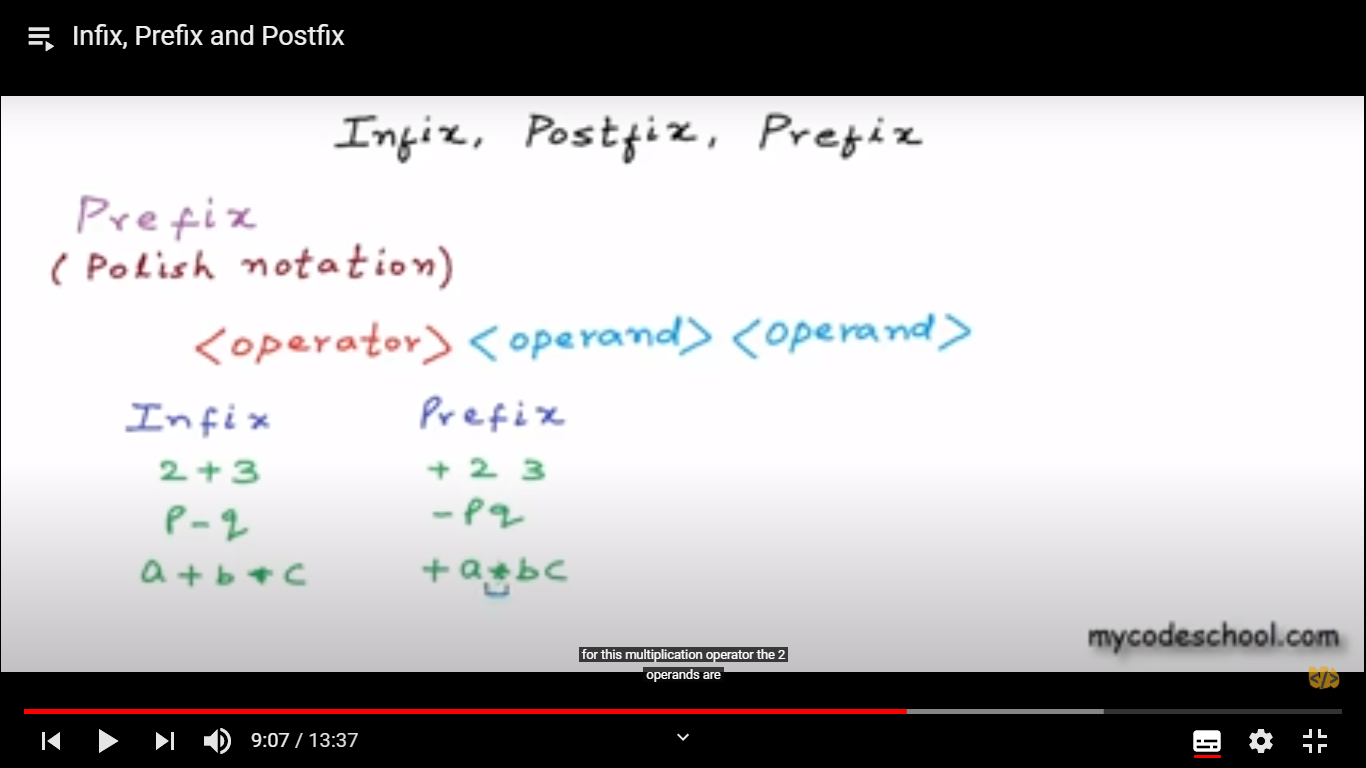 Infix, Prefix and Postfix
Infix, Postfix, Prefix
Prefix
(Polish notation)
<operator> <operand> <operand>
Infix Prefix
2 + 3 + 2 3
P - q - P q
a + b * c + a * b c
mycodeschool.com
for this multiplication operator the 2
operands are
</>
9:07 / 13:37